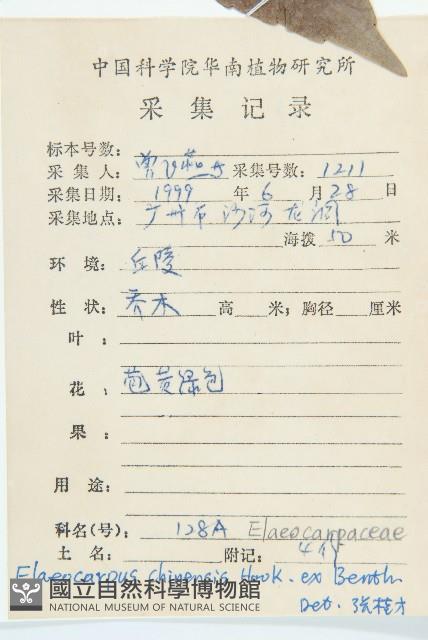 中国科学院华南植物研究所
采集记录
标本号数:
采集人: 曾飞燕 采集号数: 1211
采集日期: 1999 年 6 月 28 日
采集地点: 广州市沙河龙洞
海拨 50 米
环境: 丘陵
性状: 乔木 高 米; 胸径 厘米
叶:
花: 苞黄绿色
果:
用途:
科名(号): 128A Elaeocarpaceae
土名: 附记: 4份
Elaeocarpus chinensis Hook. ex Benth.
Det. 张桂才
國立自然科學博物館
NATIONAL MUSEUM OF NATURAL SCIENCE